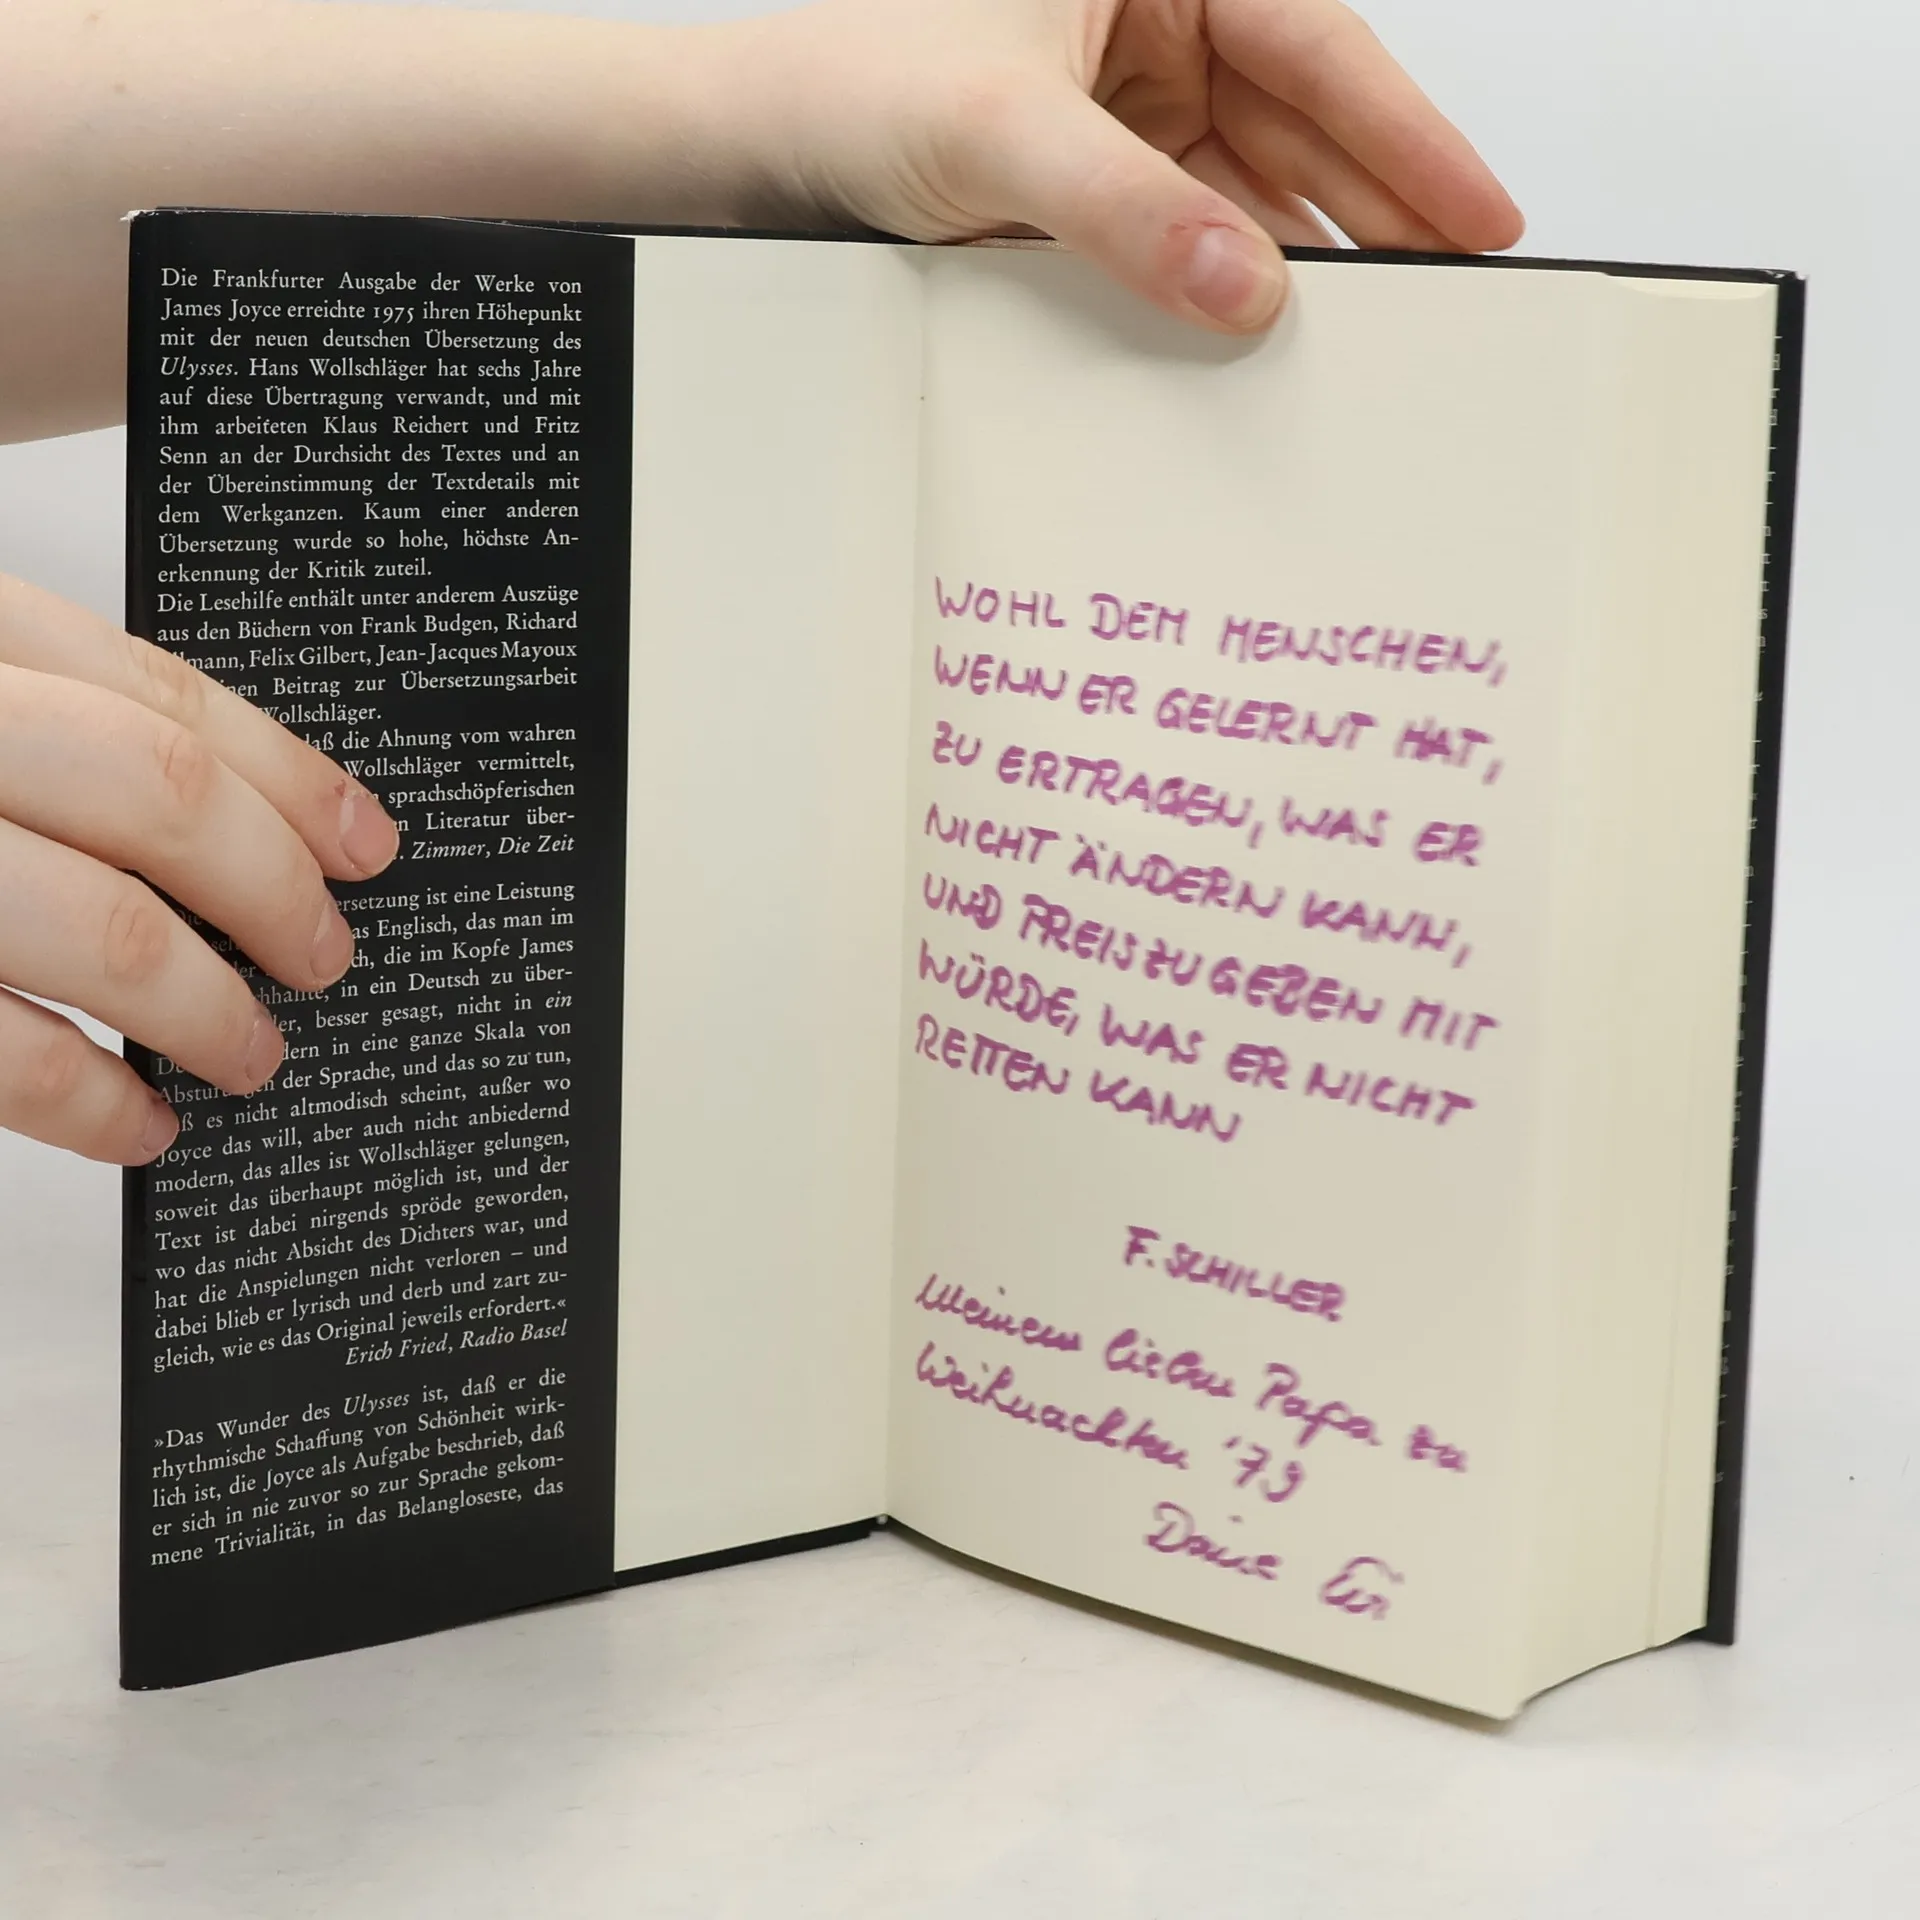 Die Frankfurter Ausgabe der Werke von
James Joyce erreichte 1975 ihren Höhepunkt
mit der neuen deutschen Übersetzung des
Ulysses. Hans Wollschläger hat sechs Jahre
auf diese Übertragung verwandt, und mit
ihm arbeiteten Klaus Reichert und Fritz
Senn an der Durchsicht des Textes und an
der Übereinstimmung der Textdetails mit
dem Werkganzen. Kaum einer anderen
Übersetzung wurde so hohe, höchste An-
erkennung der Kritik zuteil.
Die Lesehilfe enthält unter anderem Auszüge
aus den Büchern von Frank Budgen, Richard
mann, Felix Gilbert, Jean-Jacques Mayoux
nen Beitrag zur Übersetzungsarbeit
Wollschläger.
daß die Ahnung vom wahren
Wollschläger vermittelt,
sprachschöpferischen
n Literatur über-
. Zimmer, Die Zeit
ersetzung ist eine Leistung
as Englisch, das man im
ch, die im Kopfe James
hhallte, in ein Deutsch zu über-
er, besser gesagt, nicht in ein
dern in eine ganze Skala von
der Sprache, und das so zu tun,
ß es nicht altmodisch scheint, außer wo
Joyce das will, aber auch nicht anbiedernd
modern, das alles ist Wollschläger gelungen,
soweit das überhaupt möglich ist, und der
Text ist dabei nirgends spröde geworden,
wo das nicht Absicht des Dichters war, und
hat die Anspielungen nicht verloren – und
dabei blieb er lyrisch und derb und zart zu-
gleich, wie es das Original jeweils erfordert.«
Erich Fried, Radio Basel
»Das Wunder des Ulysses ist, daß er die
rhythmische Schaffung von Schönheit wirk-
lich ist, die Joyce als Aufgabe beschrieb, daß
er sich in nie zuvor so zur Sprache gekom-
mene Trivialität, in das Belangloseste, das
WOHL DEM MENSCHEN,
WENN ER GELERNT HAT,
ZU ERTRAGEN, WAS ER
NICHT ÄNDERN KANN,
UND PREISZUGEBEN MIT
WÜRDE, WAS ER NICHT
RETTEN KANN
F. SCHILLER
Meinem lieben Papa zu
Weihnachten '79